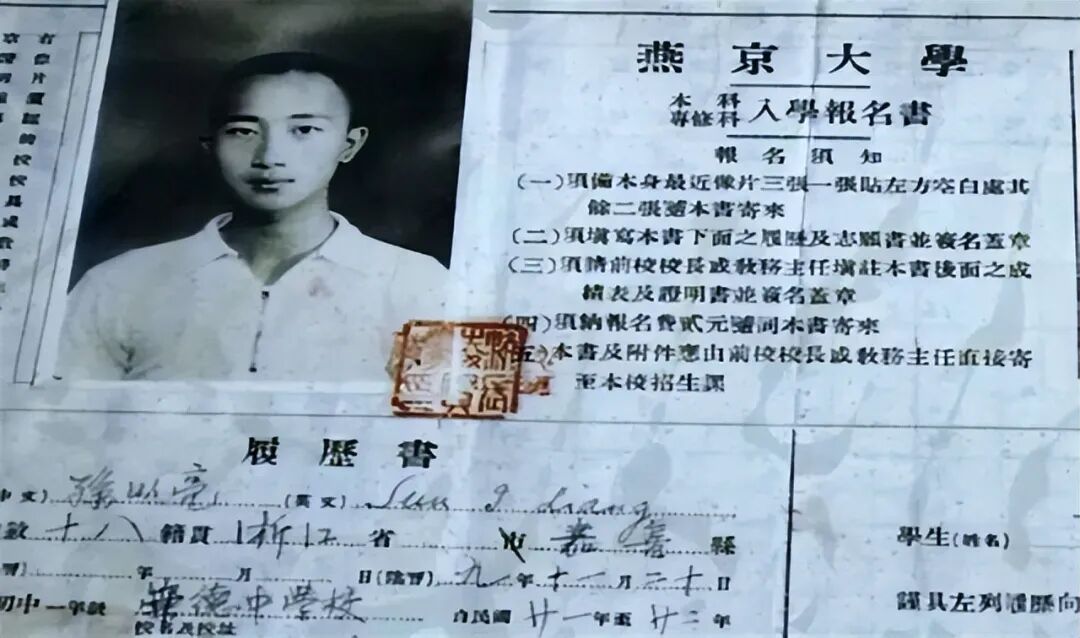 燕京大學
本科
專修科 入學報名書
報名須知
(一)須備本身最近像片三張一張貼左方空白處其
餘二張隨本書寄來
(二)須塡寫本書下面之履歷及志願書並簽名蓋章
(三)須請前校校長或敎務主任塡註本書後面之成
績表及證明書並簽名蓋章
(四)須納報名費貳元隨同本書寄來
五)本書及附件應由前校校長或敎務主任直接寄
至本校招生課
履歷書
中文)孫以亮(英文)Sun I liang
歲十八籍貫浙江省 嘉善縣
年 月 日(陰曆)九一年十一月二十日
初中一年級 德中學校 自民國廿一年至廿二年
校名及校址
學生(姓名)
謹具左列履歷向